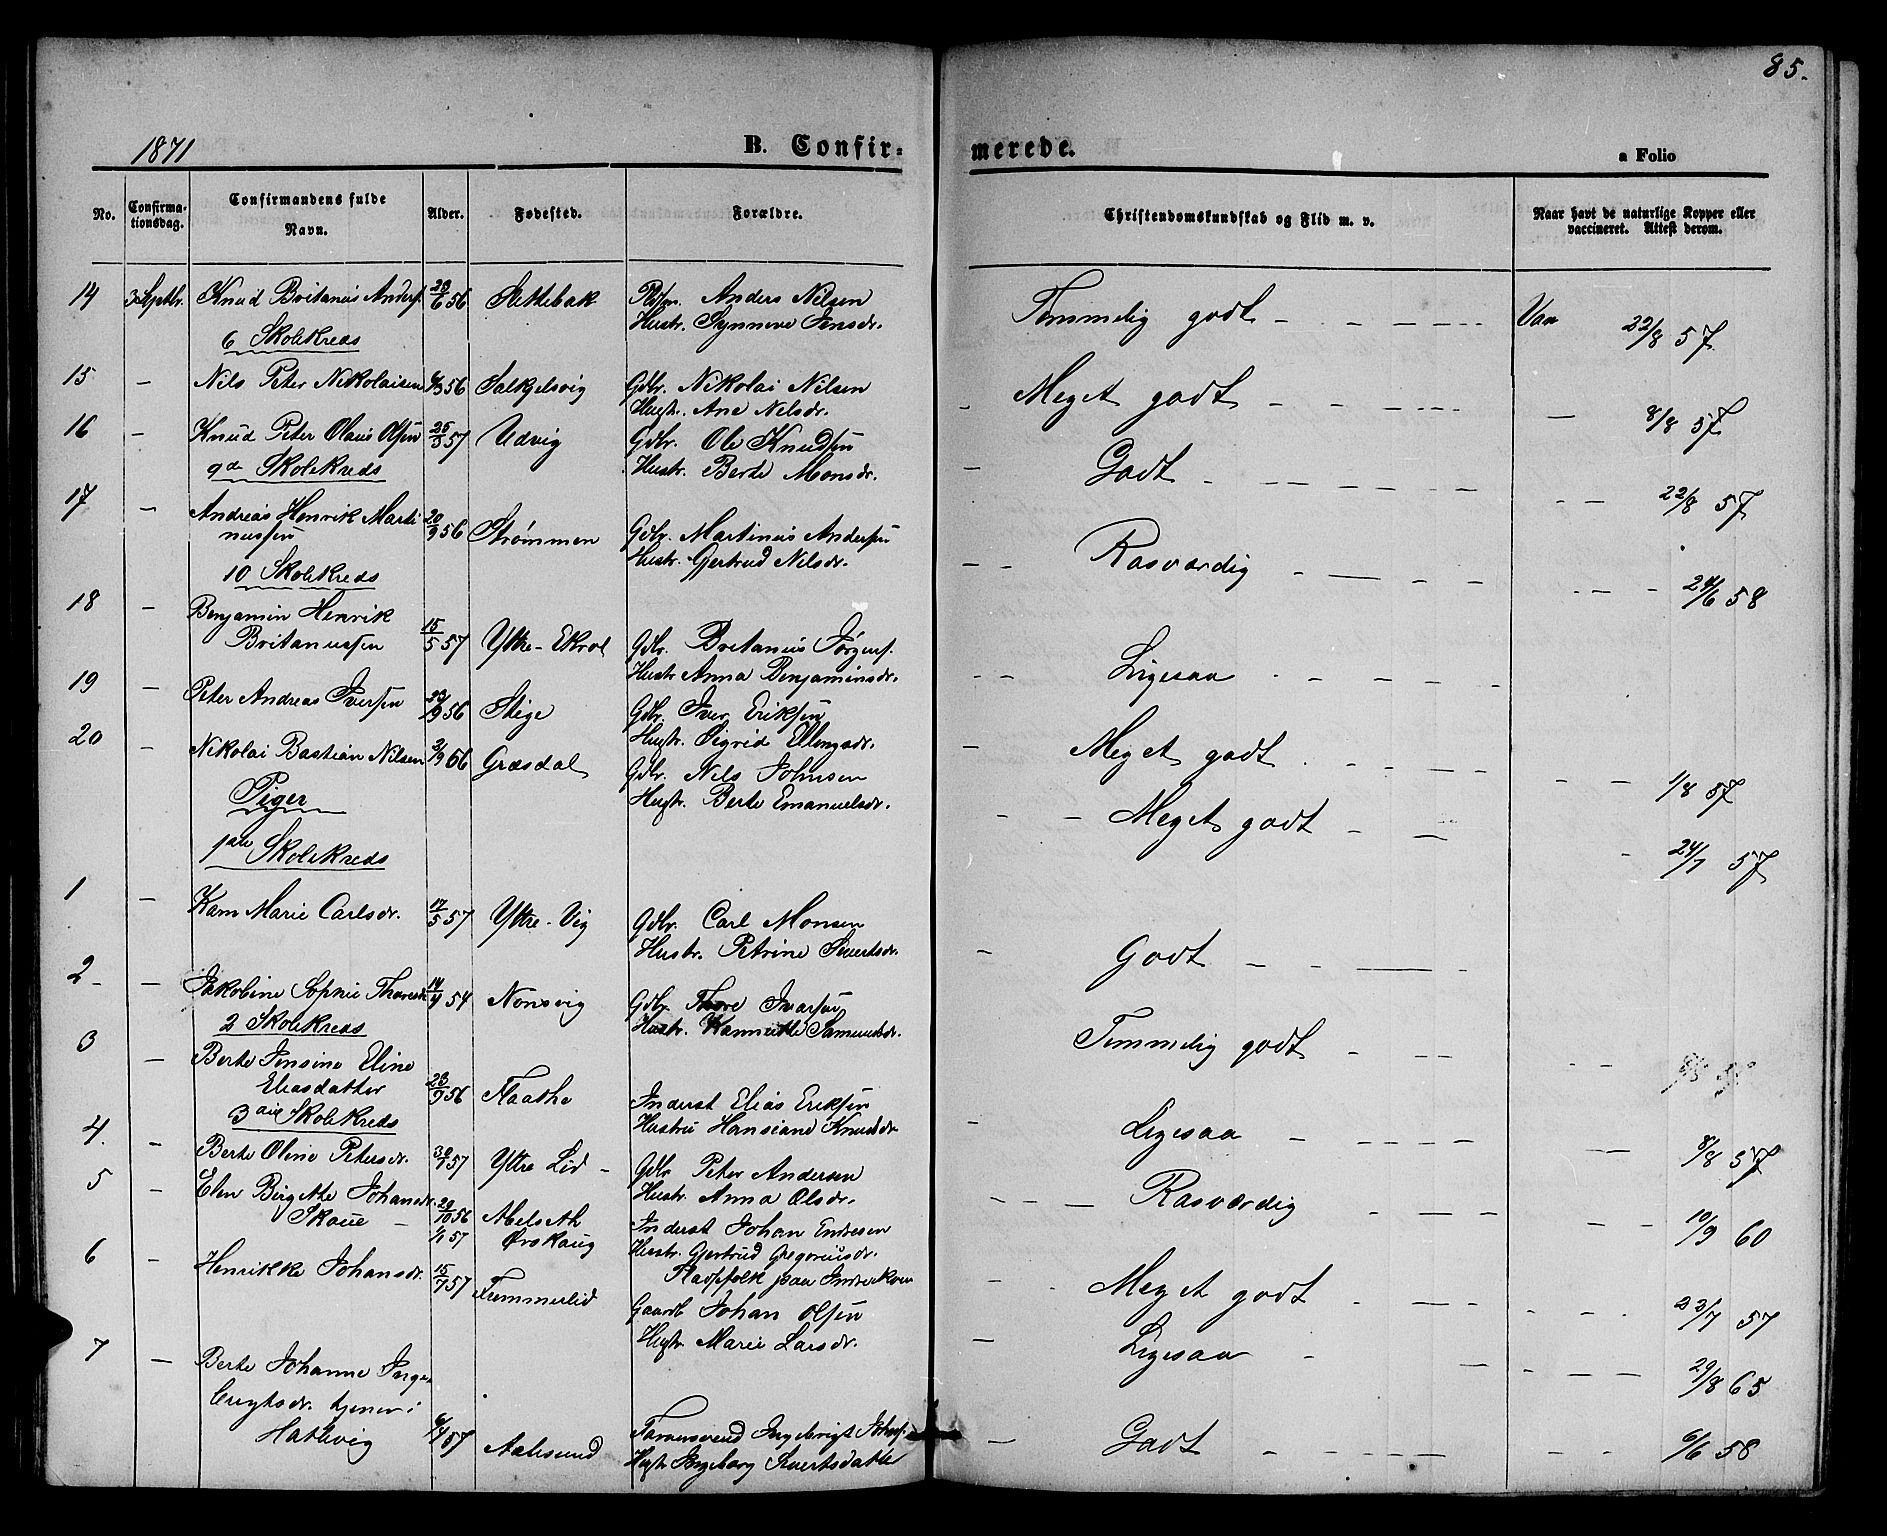 85.
1871 B. Confir- merede. a Folio
No. Confirma-tionsdag. Confirmandens fulde Navn. Alder. Fødested. Forældre. Christendomskundskab og Flid m. v. Naar havt de naturlige Kopper eller vaccineret. Attest derom.
14 3 Septbr. Knud Britanus Anders. 23/6 56 Settebak Anders Nilsen Temmelig godt Vac 22/8 57
Hustr. Synneve Jensdr.
6 Skolekreds
15 - Nils Peter Nikolaisen 6/3 56 Salkjelsvig Gdbr. Nikolai Nilsen Meget godt 8/8 57
Hustr. Ane Nilsdr.
16 - Knud Peter Olaus Olsen 25/5 57 Udvig Gdbr. Ole Knudsen Godt 22/8 57
9de Skolekreds Hustr. Berte Monsdr.
17 - Andreas Henrik Marti 20/9 56 Strømmen Gdbr. Martinus Andersen Rosværdig 24/6 58
nussen Hustr. Gjertrud Nilsdr.
10 Skolekreds
18 - Benjamin Henrik
Britanussen 15/5 57 Yttre-Ekrol Gdbr. Britanus Jørgens. Ligesaa
Hustr Anna Benjaminsdr.
19 - Peter Andreas Iversen 23/9 56 Stige Gdbr. Iver Eriksen Meget godt 1/8 57
Hustr. Sigrid Ellingsdr.
20 - Nikolai Bastian Nilsen 3/9 66 Græsdal Gdbr. Nils Johnsen Meget godt 24/7 57
Hustr. Berte Emanuelsdr.
Piger
1ste Skolekreds
1 - Karn Marie Carlsdr. 17/5 57 Yttre-Vig Gdbr. Carl Monsen Godt
Hustr. Petrine Sivertsdr.
2 - Jakobine Sophie Thoresdr 14/4 54 Nonsvig Gdbr. Thore Ivarsen Temmelig godt
2 Skolekreds Hustr. Samuelsdr.
3 - Berte Jensine Eline
Eliasdatter 23/9 56 Naathe Inderst Elias Eriksen Ligesaa 8/8 57
3die Skolekreds Hustru Hansiane Knudsdr
4. - Berte Oline Petersdr. 30/1 57 Yttre Lid - Gdbr Peter Andersen Rosværdig 10/9 60
Hustr. Anna Olsdr.
5 - Elen Birgithe Johansdr. 29/10 56 Abelseth Inderst Johan Endresen Meget godt 23/7 57
Skoue - 1/1 57 Ørskoug Hustr. Gjertrud Gregoriusdr.
6 - Henrikke Johansdr. 15/7 57 Tremmerlid Gaardb Johan Olsen Ligesaa 29/8 65
Hustr Marie Larsdr.
7 - Berte Johanne Inge
brigtsdr. tjener i
Hatlevig 6/4 57 Aalesund Ingebrigt Johns. Godt 6/6 58
Hustr Ingeborg Sivertsdatter